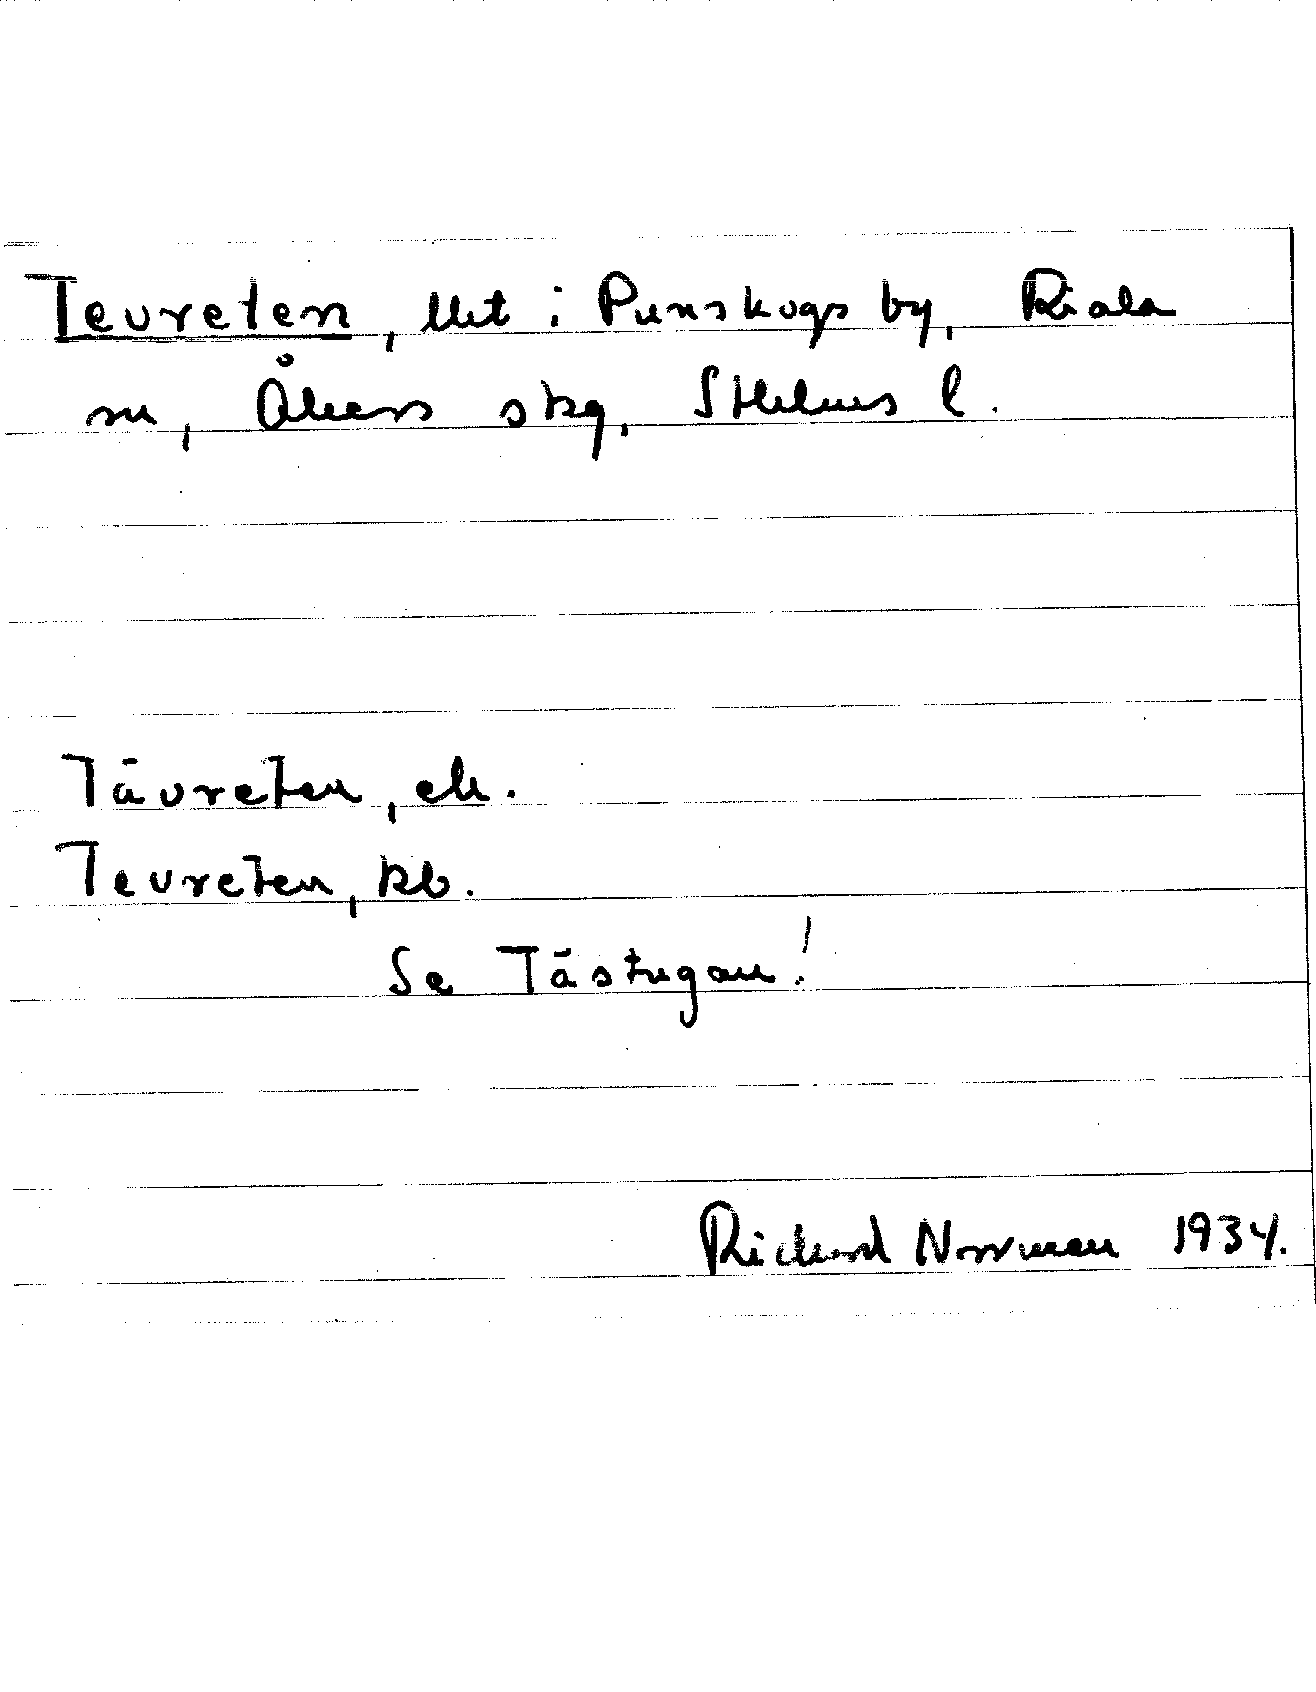 Tevreten, lht i Punskogs by, Riala
sn, Åkers skg, Sthlms l.
Tävreten, ek.
Tevreten, kb.
Se Tästugan!
Richard Norrman 1934.